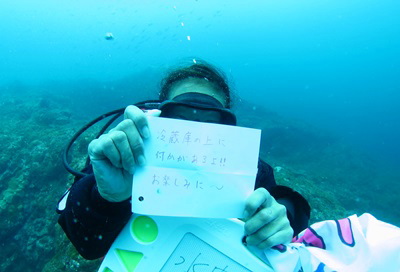 冷蔵庫の上に
何かがあるよ!!
お楽しみに〜